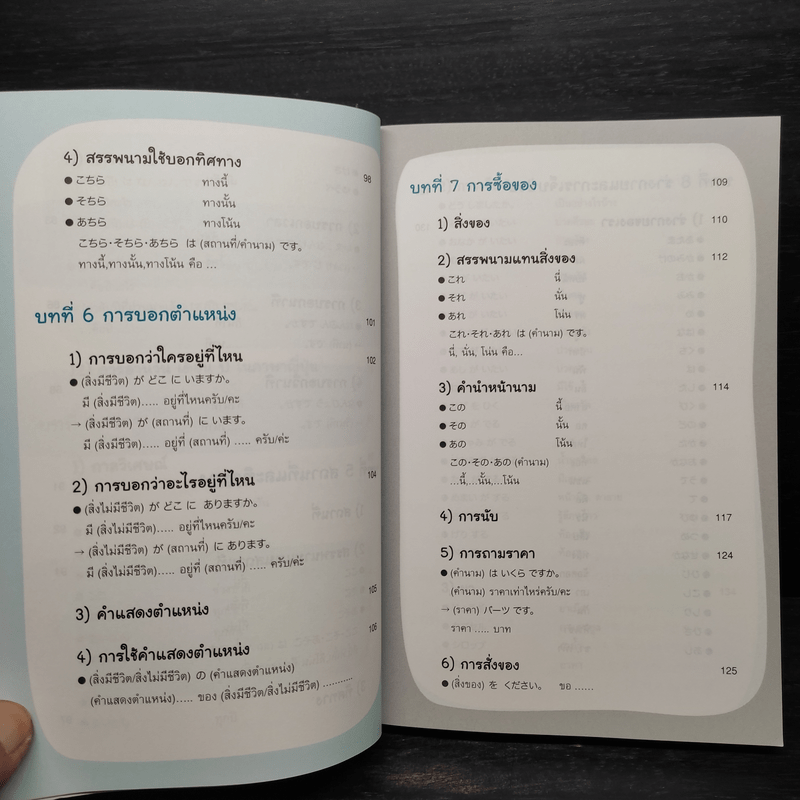 4) สรรพนามใช้บอกทิศทาง 98
● こちら ทางนี้
● そちら ทางนั้น
● あちら ทางโน้น
こちら・そちら・あちら は (สถานที่/คำนาม) です。
ทางนี้,ทางนั้น,ทางโน้น คือ ...
บทที่ 6 การบอกตำแหน่ง 101
1) การบอกว่าใครอยู่ที่ไหน 102
● (สิ่งมีชีวิต) が どこ に いますか。
มี (สิ่งมีชีวิต)..... อยู่ที่ไหนครับ/คะ
→ (สิ่งมีชีวิต) が (สถานที่) に います。
มี (สิ่งมีชีวิต)..... อยู่ที่ (สถานที่) ..... ครับ/ค่ะ
2) การบอกว่าอะไรอยู่ที่ไหน 104
● (สิ่งไม่มีชีวิต) が どこ に ありますか。
มี (สิ่งไม่มีชีวิต)..... อยู่ที่ไหนครับ/คะ
→ (สิ่งไม่มีชีวิต) が (สถานที่) に あります。
มี (สิ่งไม่มีชีวิต)..... อยู่ที่ (สถานที่) ..... ครับ/ค่ะ
3) คำแสดงตำแหน่ง 105
4) การใช้คำแสดงตำแหน่ง 106
● (สิ่งมีชีวิต/สิ่งไม่มีชีวิต) の (คำแสดงตำแหน่ง)
(คำแสดงตำแหน่ง)..... ของ (สิ่งมีชีวิต/สิ่งไม่มีชีวิต) ..........
บทที่ 7 การซื้อของ 109
1) สิ่งของ 110
2) สรรพนามแทนสิ่งของ 112
● これ นี่
● それ นั่น
● あれ โน่น
これ・それ・あれ は (คำนาม) です。
นี่, นั่น, โน่น คือ...
3) คำนำหน้านาม 114
● この นี้
● その นั้น
● あの โน้น
この・その・あの (คำนาม)
...นี้,...นั้น,...โน้น
4) การนับ 117
5) การถามราคา 124
● (คำนาม) は いくら ですか。
(คำนาม) ราคาเท่าไหร่ครับ/คะ
→ (ราคา) バーツ です。
ราคา ..... บาท
6) การสั่งของ 125
● (สิ่งของ) を ください。 ขอ ......